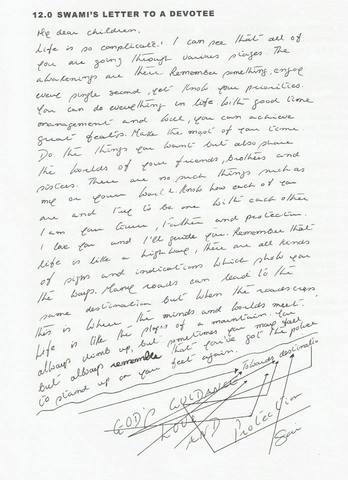 12.0 SWAMI'S LETTER TO A DEVOTEE
My dear children,
Life is so complicate! I can see that all of
you are going through various stages The
awakenings are their Remember something, enjoy
every single second, yet know your priorities.
You can do everything in life with good time
management and will, you can achieve
great feats. Make the most of your time
Do the things you want but also share
the worlds of your friends, brothers and
sisters. There are no such things such as
me or your world. Know how each of you
are and try to be one with each other
I am your Guru, Father and protection.
I love you and I'll guide you. Remember that
life is like a highway, there are all kinds
of signs and indications which show you
the ways. Many roads can lead to the
same destination but when the roads cross
this is where the minds and worlds meet.
Life is like the slopes of a mountain. You
always climb up, but sometimes you may fall
but always remember that you've got the power
to stand up on your feet again.
Towards destination
GOD'S GUIDANCE
LOVE
AND Protection
Sai